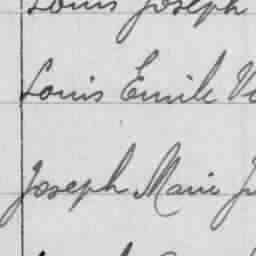 Louis Joseph
Louis Emile
Joseph Marie